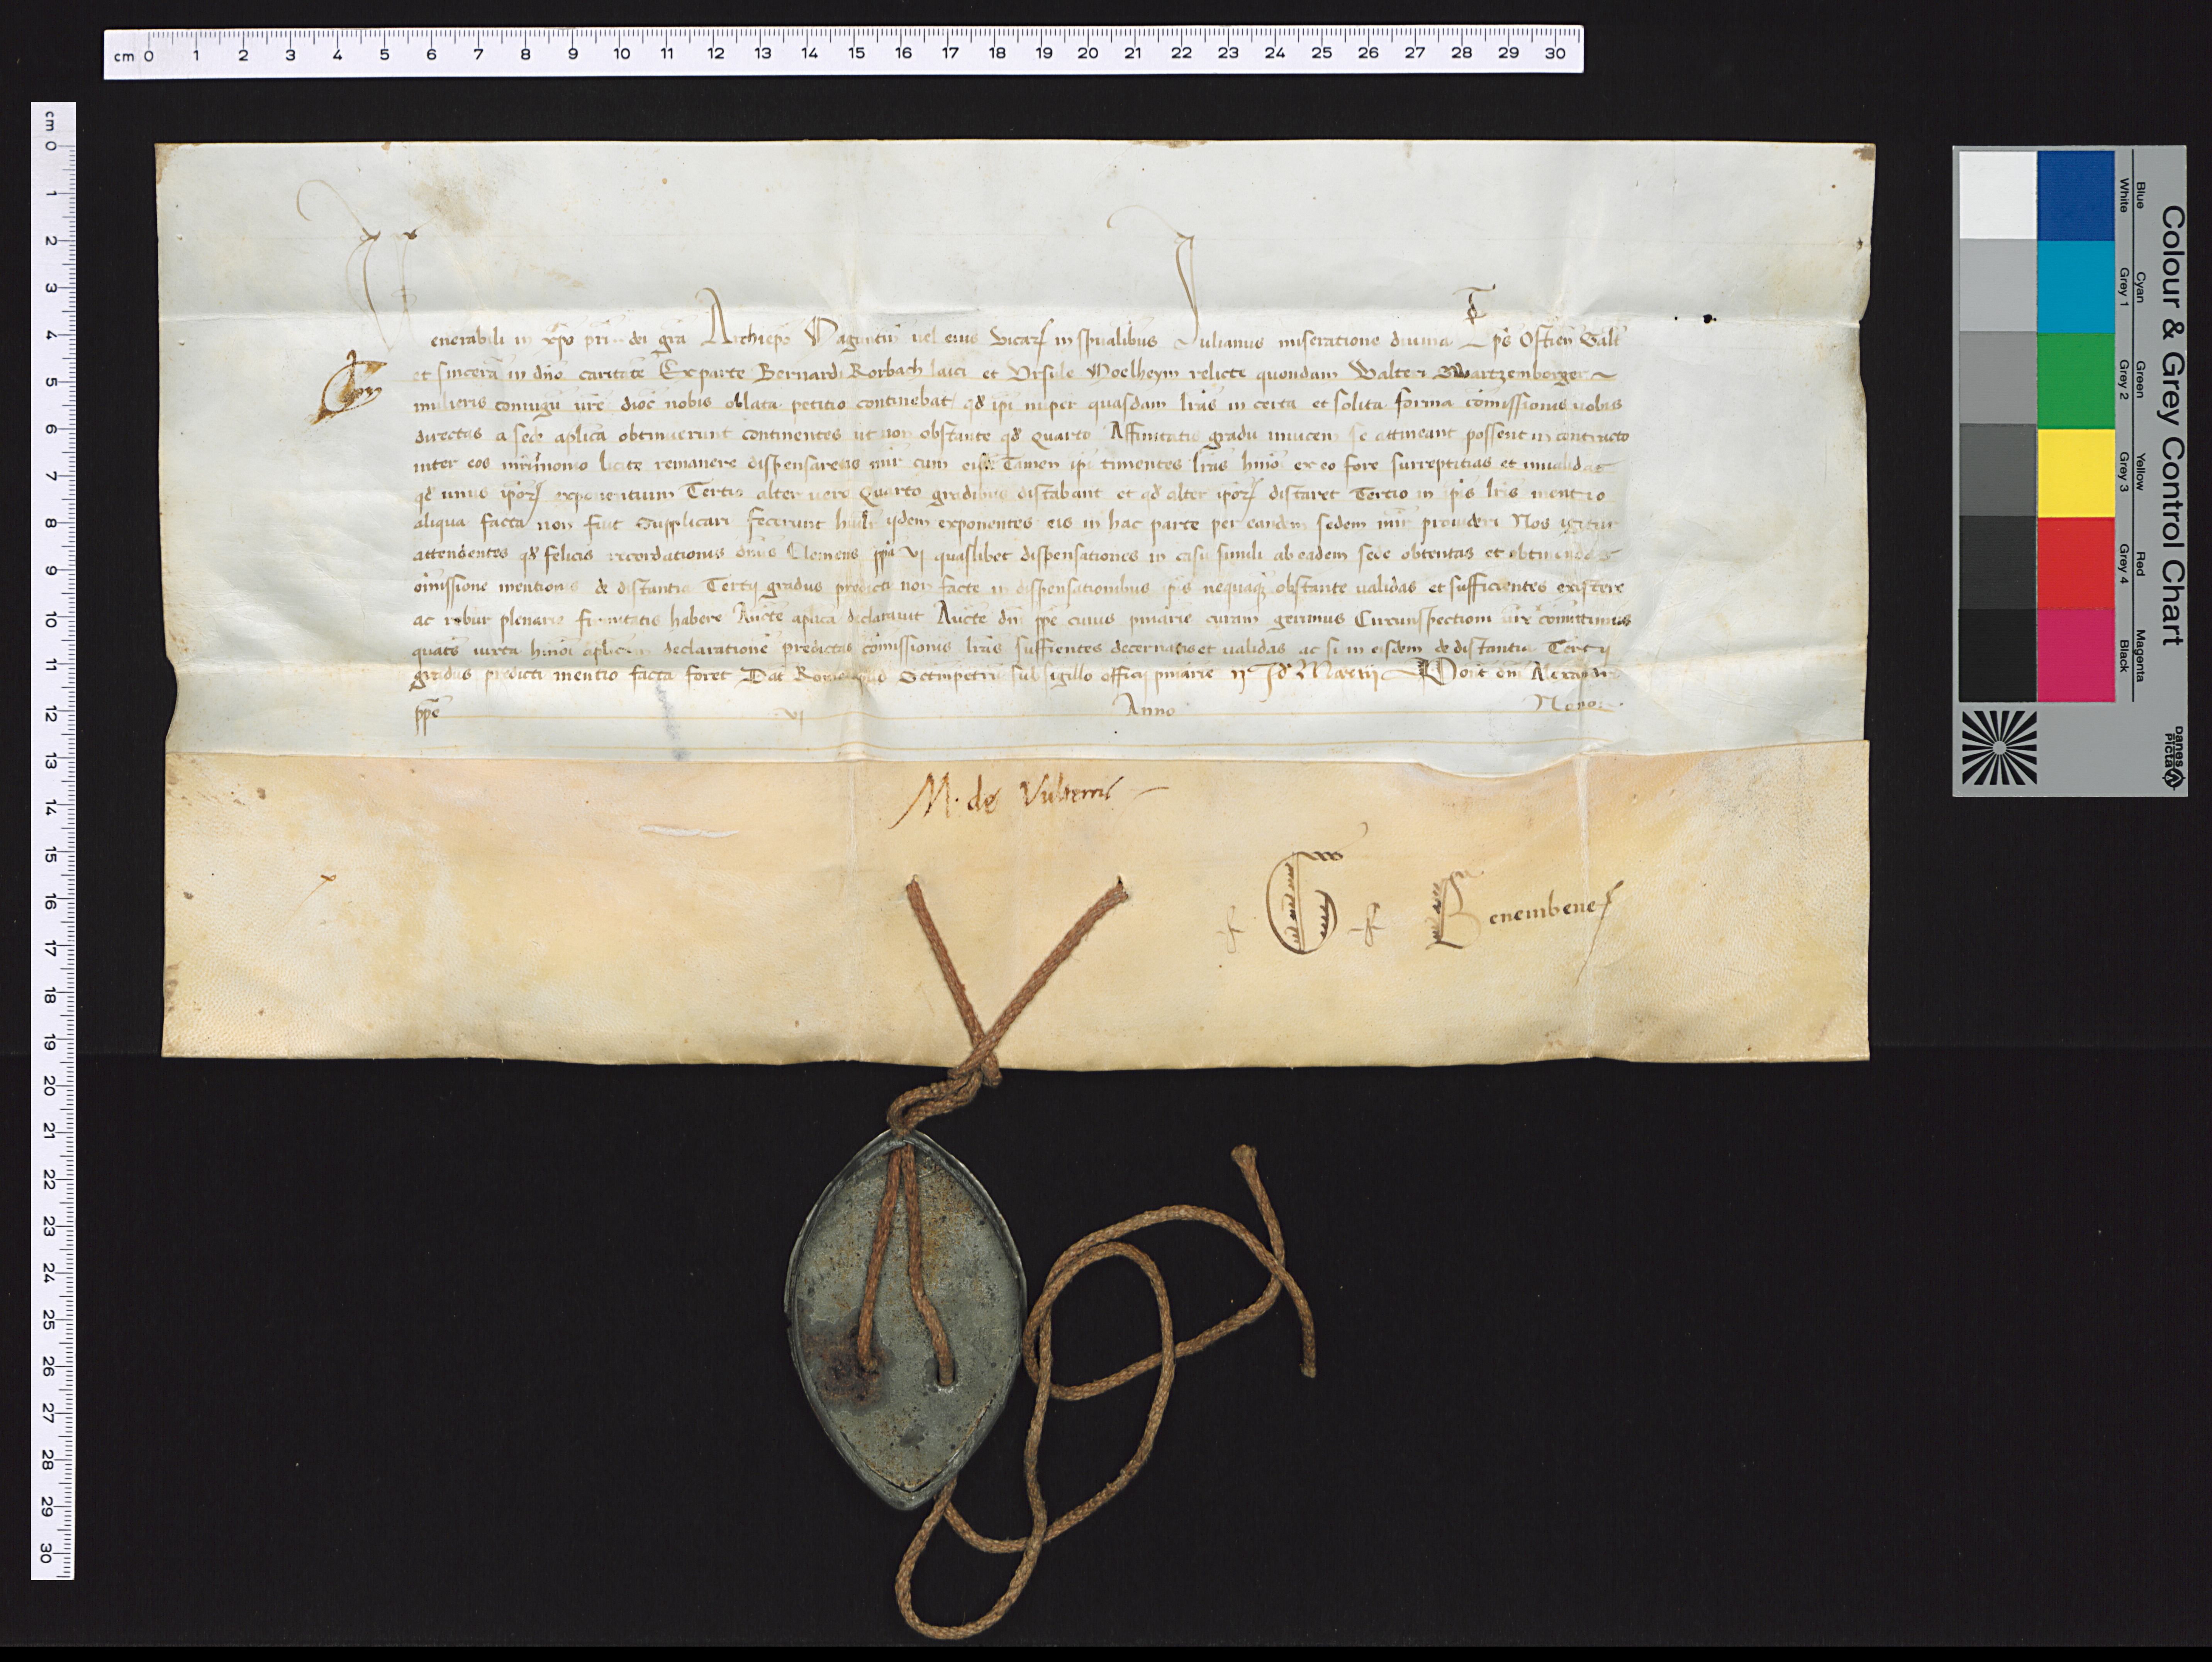 cm 0 1 2 3 4 5 6 7 8 9 10 11 12 13 14 15 16 17 18 19 20 21 22 23 24 25 26 27 28 29 30
cm 0 1 2 3 4 5 6 7 8 9 10 11 12 13 14 15 16 17 18 19 20 21 22 23 24 25 26 27 28 29 30
Venerabili in xpo pri dei gra Archiepo Maguntin uel eius vicar in spualibus Iulianus miseratione diuina Eps Ostien Salt
et sincera in dno caritate Ex parte Bernardi Rorbach laici et Ursule Moelheym relicte quondam Walteri Swartzemberger
mulieris coniugu vre dioc nobis oblata petitio continebat qd ipi nuper quasdam lras in certa et solita forma comissionis uobis
directas a sede aplica obtinuerunt continentes ut non obstante qd Quarto Affinitatis gradu inuicem se attineant possent in contracto
inter eos mrimonio licite remanere dispensaretis mir cum eisd Tamen ipi timentes lras hmoi ex eo fore surreptitias et inualidas
qd unus ipor exponentium Tertio alter uero Quarto gradibus distabant et qd alter ipor distaret Tercio in ipis lris mentio
aliqua facta non fuit Supplicari fecerunt humlr ijdem exponentes eis in hac parte per eandem sedem mir prouideri Nos igitur
attendentes qd felicis recordationis dnus Clemens ppa vj quaslibet dispensationes in casu simili ab eadem sede obtentas et obtinendas
omissione mentionis de distantia Tertij gradus predicti non facte in dispensationibus ipis nequaq obstante ualidas et sufficientes existere
ac robur plenarie firmitatis habere Aucte aplica declarauit Aucte dni ppe cuius pniarie curam gerimus Circunspectioni vre comittimus
quats iuxta hmoi aplicam declaratione predictas comissionis lras suffientes decernatis et ualidas ac si in eisdem de distantia Tertij
gradus predicti mentio facta foret Dat Rome apud Sctmpetru sub sigillo officij pniarie ij Id Marcij Pont dni Alexandri
ppe vj Anno Nono
M. de Vulterris
G
Benembene
Colour & Grey Control Chart
Blue Cyan Green Yellow Red Magenta
White Grey 1 Grey 2 Grey 3 Grey 4 Black
Danes Picta